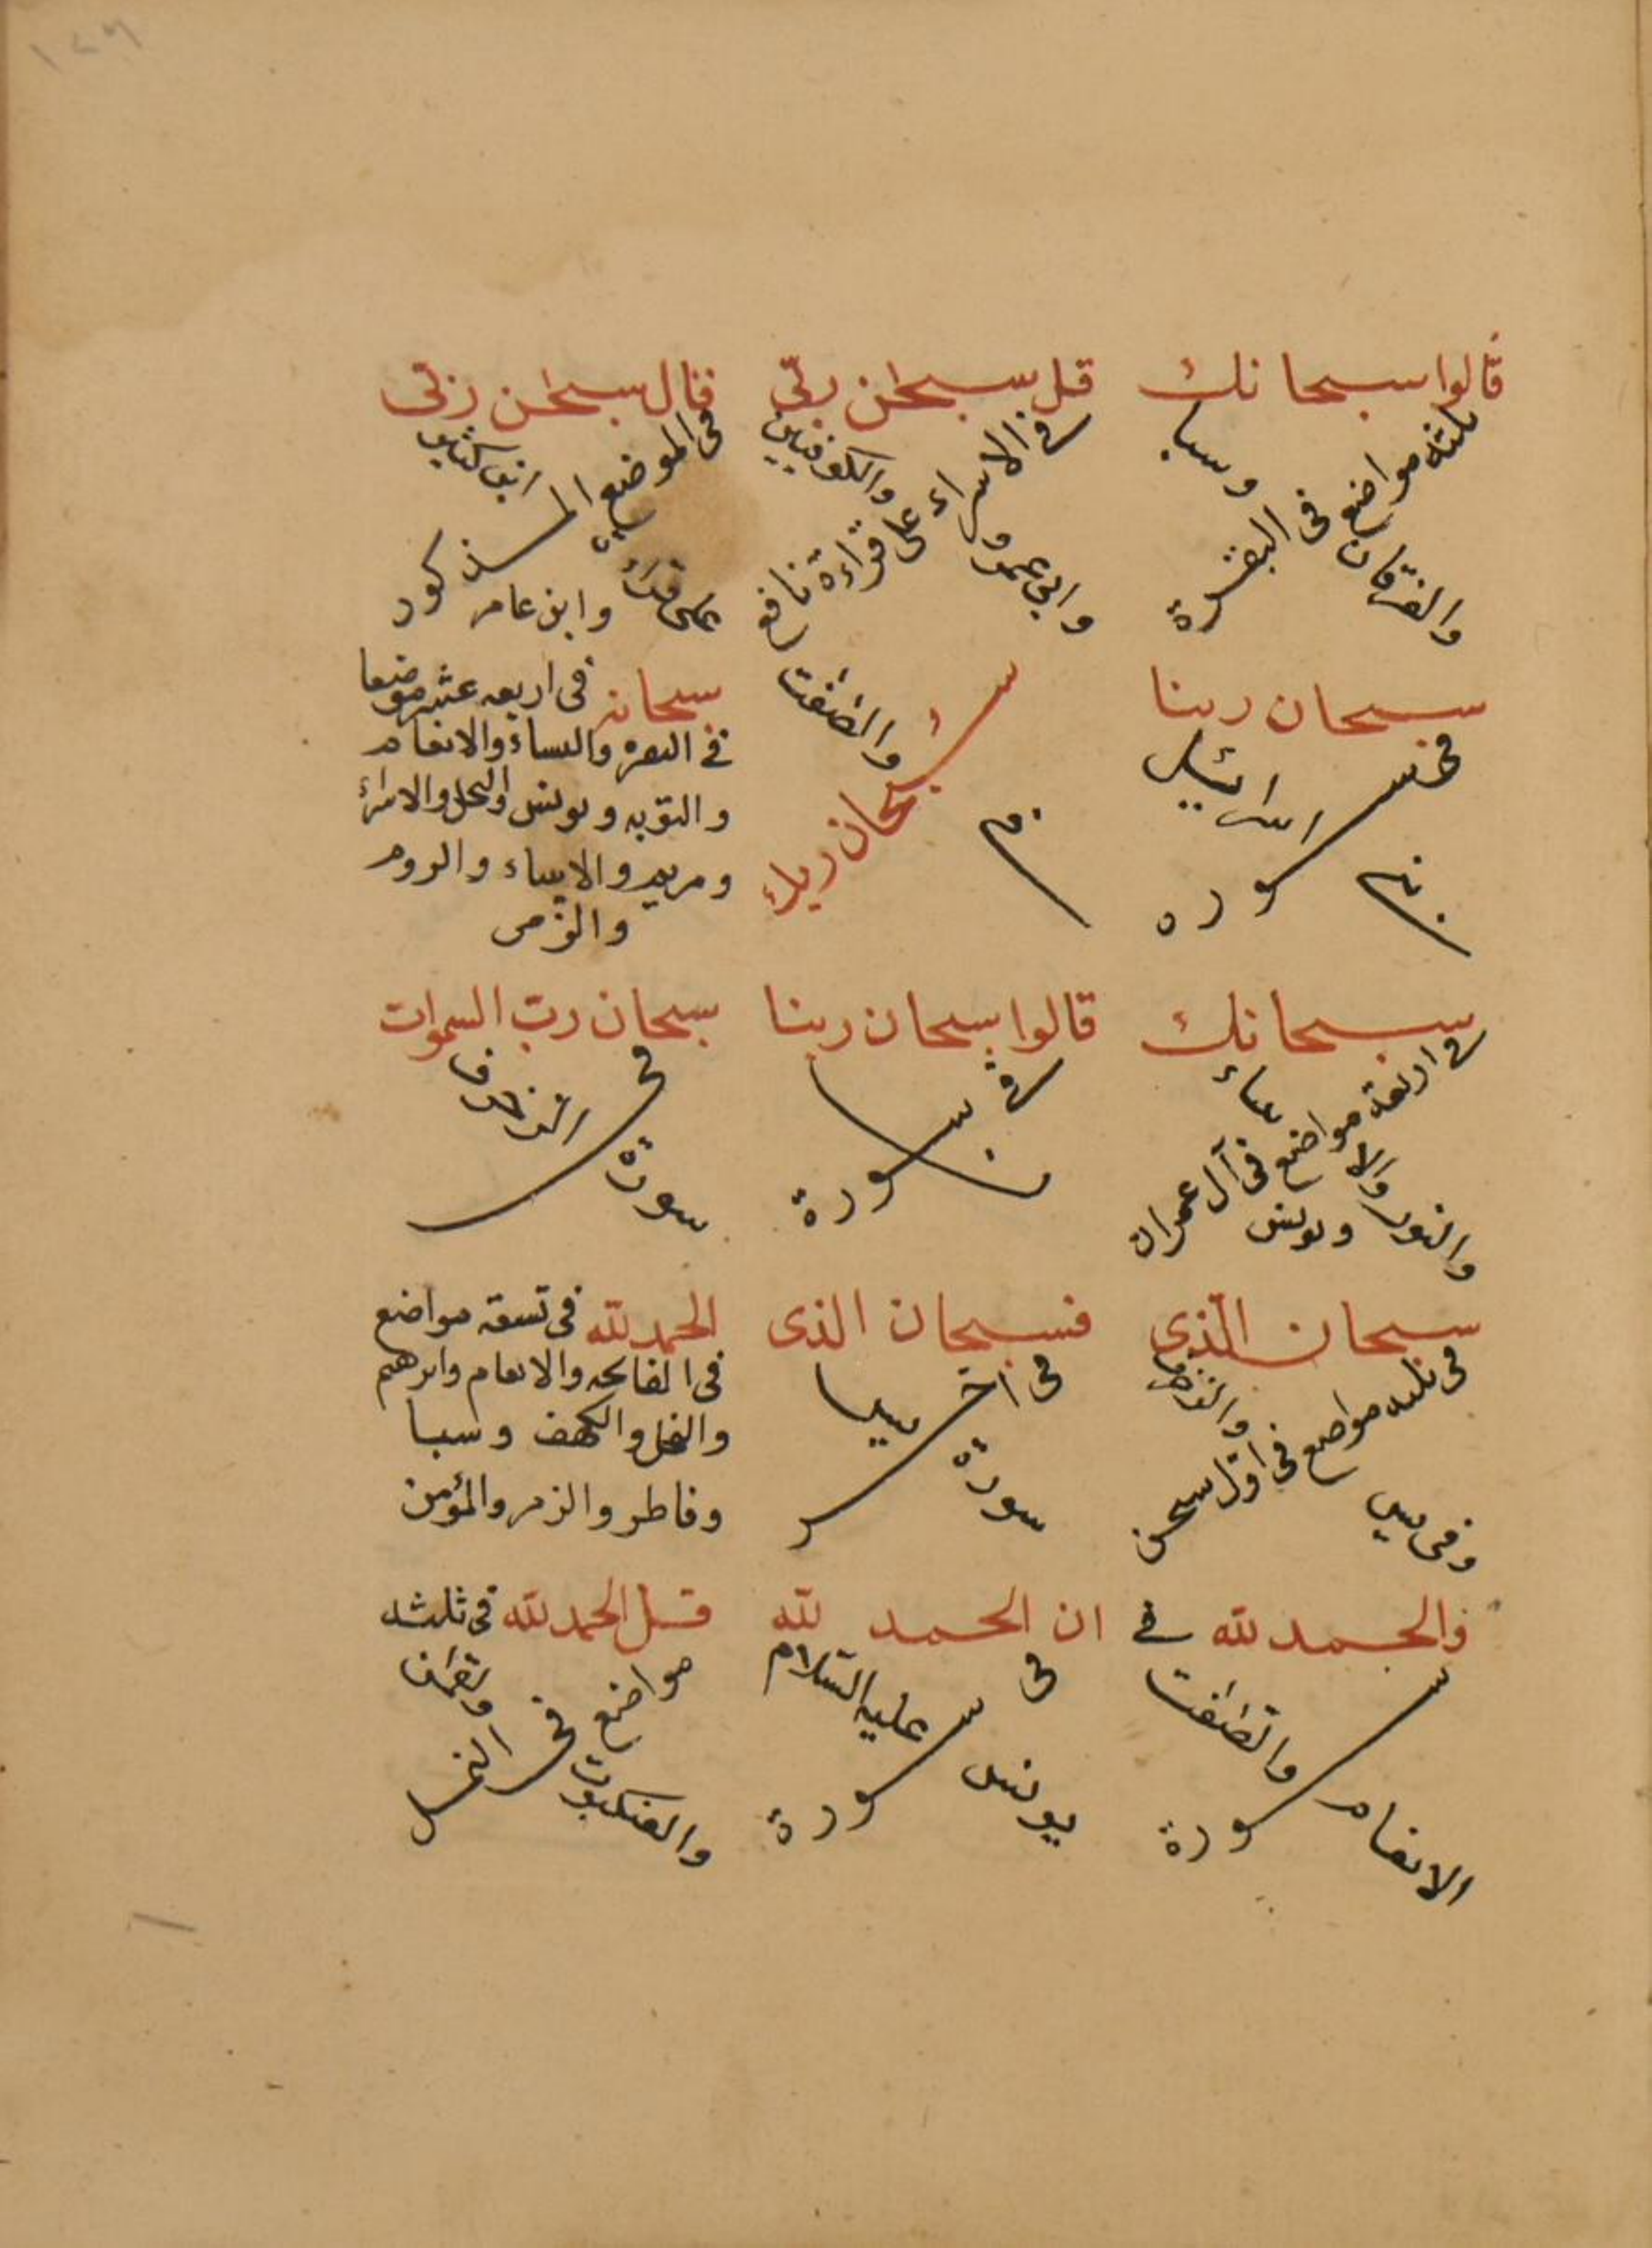 قالوا سبحانك
ثلثة مواضع في البقرة
والفرقان وسبا
قل سبحٰن ربّي
في الاسراء على قراءة نافع
وابي عمرو والكوفيين
قال سبحٰن ربّي
في الموضع المذكور
على قراءة ابن كثير
وابن عامر
سبحان ربنا
في سورة
بني اسرائيل
ن
سبحان ربك
بني
والصّفّت
سبحانه في اربعه عشر موضعا
في البقره والنساء والانعام
والتوبه ويونس والنحل والاسراء
ومريم والانبياء والروم
والزمر
سبحانك
في اربعة مواضع في آل عمران
والنور والانبياء ويونس
قالوا سبحان ربنا
في سورة
ن
سبحان ربّ السموات
في
سورة الزخرف
سبحان الّذي
في ثلثه مواضع في اوّل سبحن
وفي يس والزخرف
فسبحان الذي
في اخر
سورة يس
الحمد لله في تسعة مواضع
في الفاتحه والانعام وابرهيم
والنحل والكهف وسبا
وفاطر والزمر والمؤمن
والحمد لله في
سورة
الانعام والصّفّت
ان الحمد لله
في سورة
يونس عليه السّلام
قل الحمد لله في ثلثه
مواضع في النمل
والعنكبوت ولقمٰن